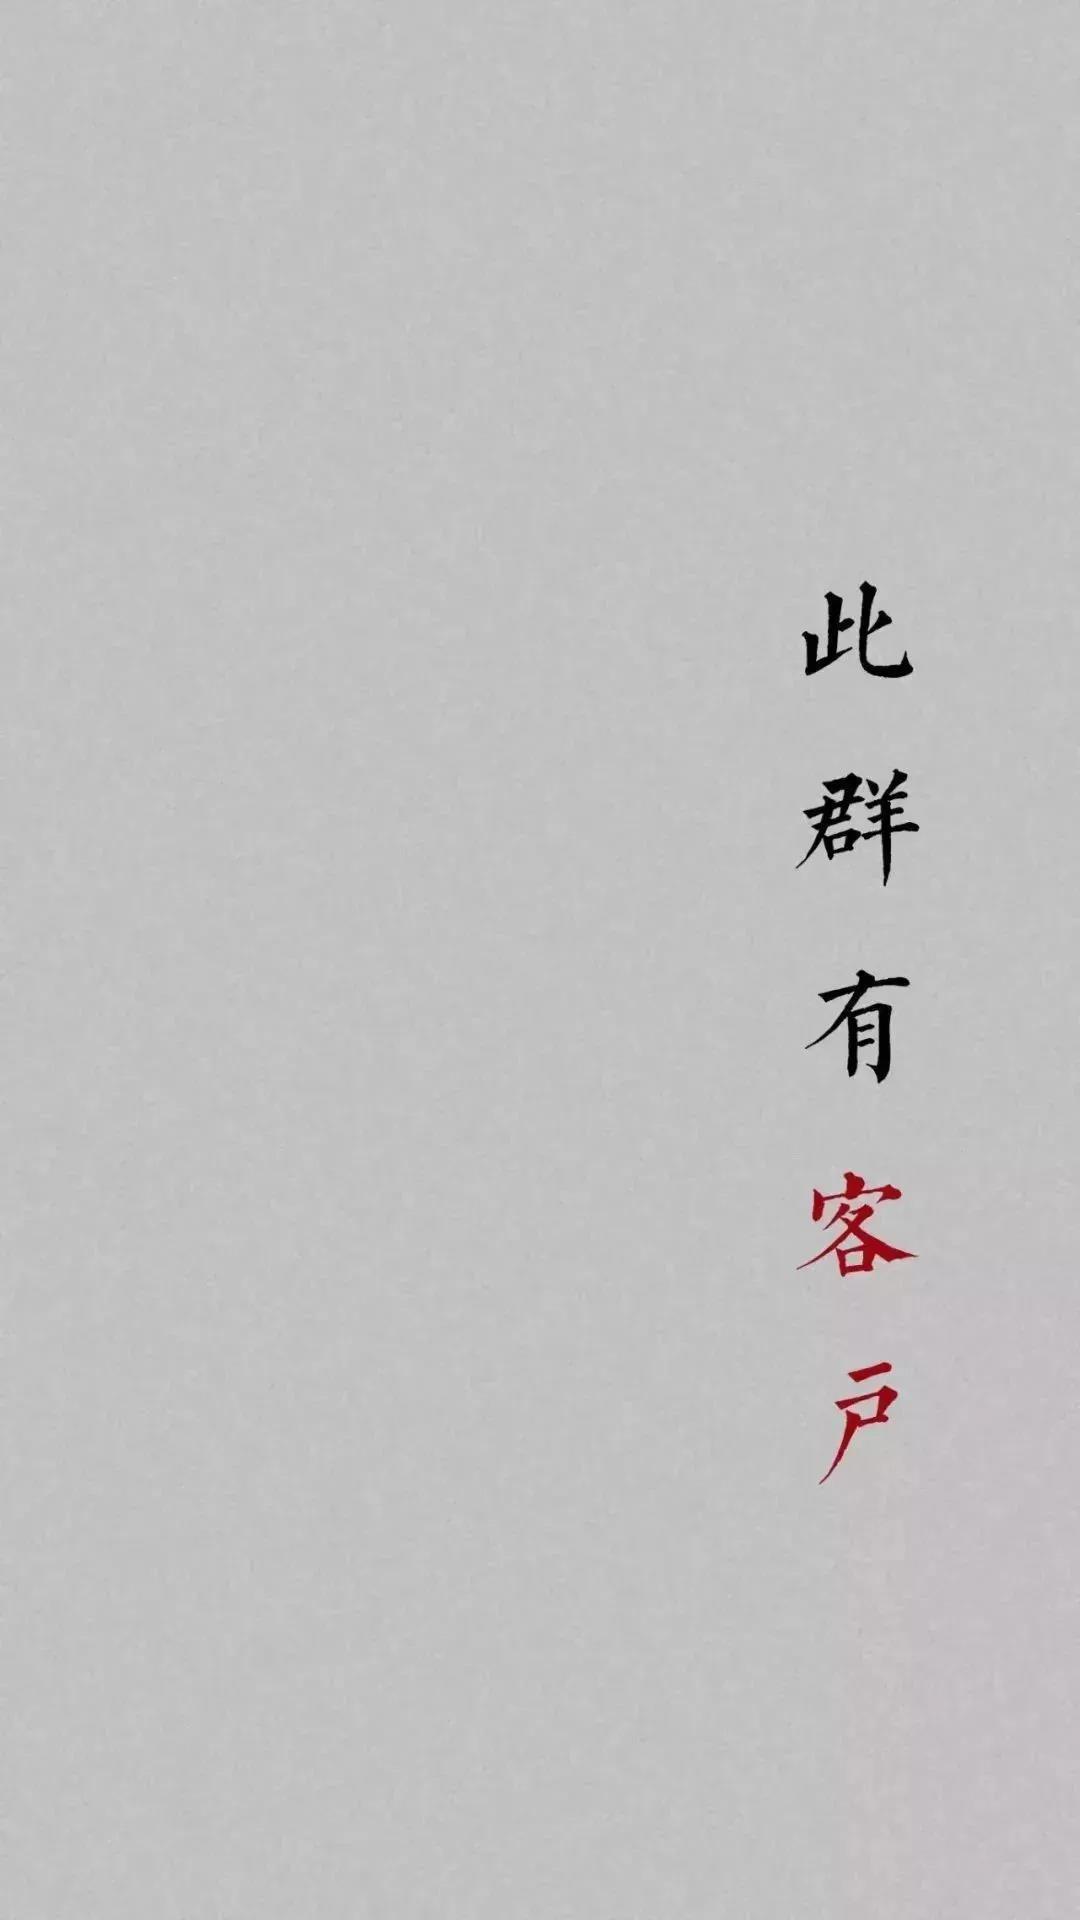 此群有客户